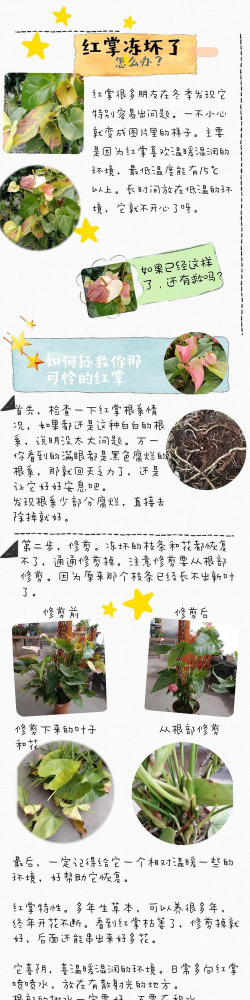 红掌冻坏了
怎么办？
红掌很多朋友在冬季发现它
特别容易出问题。一不小心
就变成图片里的样子。主要
是因为红掌喜欢温暖湿润的
环境，最低温度能有15℃
以上。长时间放在低温的环
境，它就不开心了呀。
如果已经这样
了，还有救吗？
如何拯救你那
可怜的红掌
首先，检查一下红掌根系情
况，如果都还是这种白白的根
系，说明没太大问题。万一
你看到的满眼都是黑色腐烂的
根系，那就回天乏力了，还是
让它好好安息吧。
发现根系少部分腐烂，直接去
除掉就好。
第二步，修剪。冻坏的枝条和花都恢复
不了，通通修剪掉。注意修剪要从根部
修剪。因为原来那个枝条已经长不出新叶
了。
修剪前
修剪后
修剪下来的叶子
和花
从根部修剪
最后，一定记得给它一个相对温暖一些的
环境，好帮助它恢复。
红掌特性。多年生草本，可以养很多年，
终年开花不断。看到红掌枯萎了，修剪掉就
好，后面还能串出来好多花。
它喜阴，喜温暖湿润的环境。日常多向红掌
喷喷水，放在有散射光的地方。